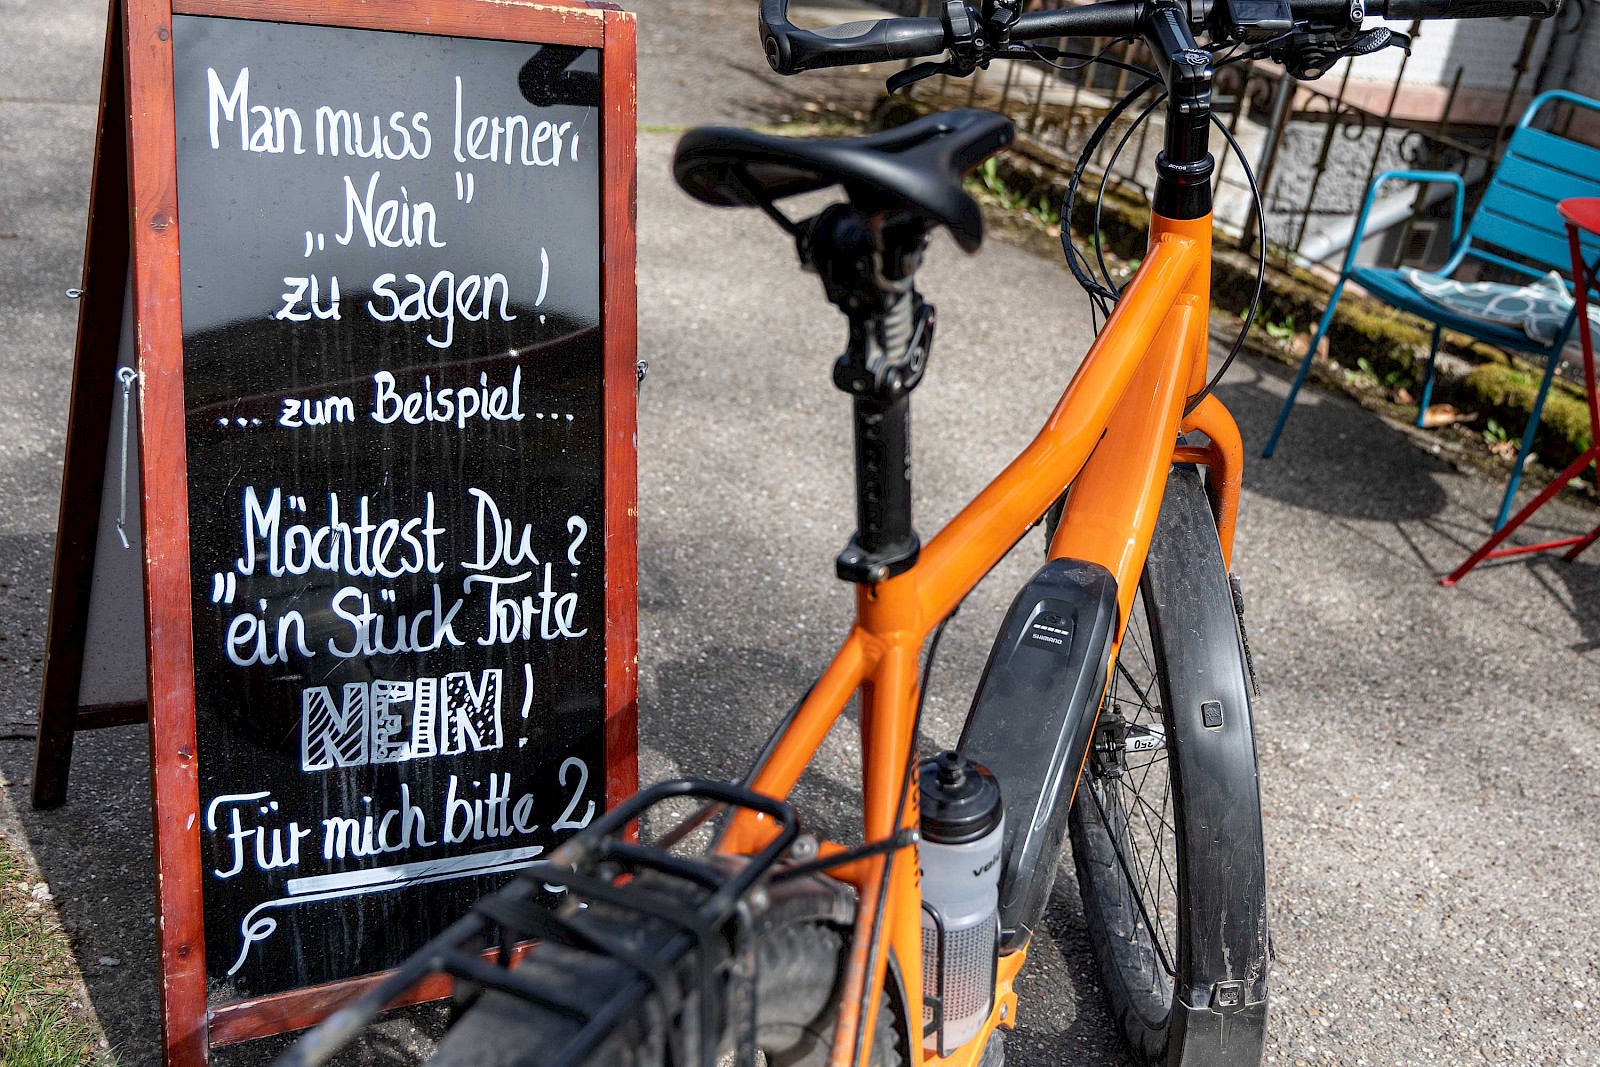 Man muss lernen
„Nein"
zu sagen!
... zum Beispiel...
"Möchtest Du ?
"ein Stück Torte
NEIN!
Für mich bitte 2
SHIMANO
acros
250